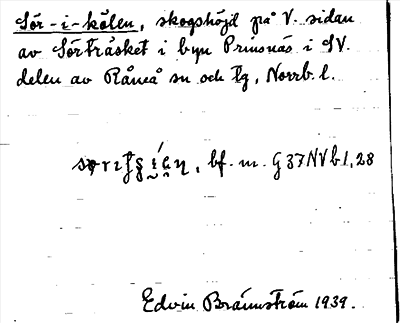 Sör-i-kölen, skogshöjd på V. sidan
av Sörträsket i byn Prinsnäs i SV.
delen av Råneå sn och tg, Norrb. l.
bf. m. G 37 NV b 1, 28
Edvin Brännström 1939.